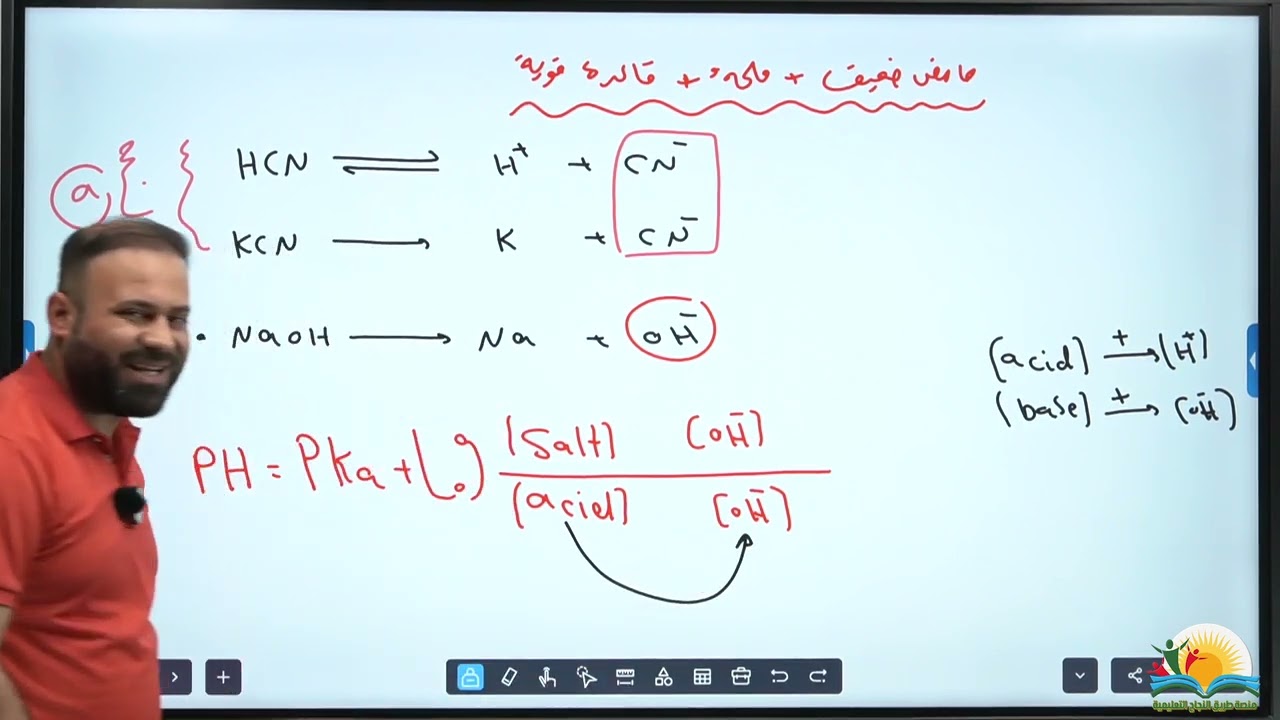 حامض ضعيف + ملحه + قاعدة قوية
a
HCN ⇌ H⁺ + CN⁻
KCN → K + CN⁻
• NaOH → Na + OH⁻
[acid] +→ [H⁺]
[base] +→ [OH⁻]
PH = Pka + Log [Salt] [OH⁻]
[acid] [OH⁻]
منصة طريق النجاح التعليمية